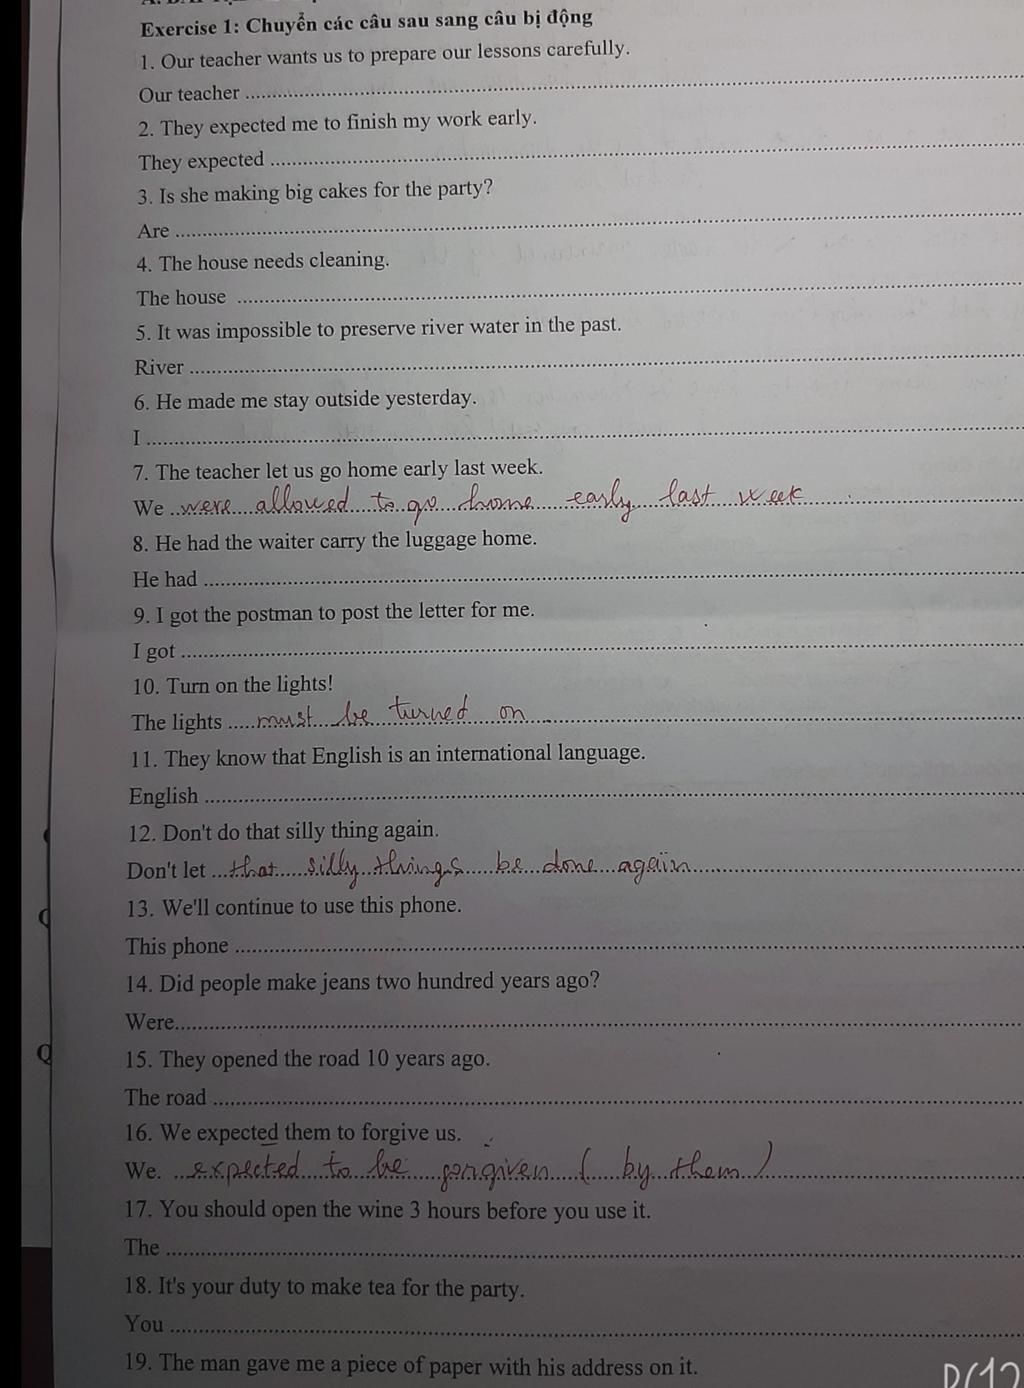 Exercise 1: Chuyển các câu sau sang câu bị động
1. Our teacher wants us to prepare our lessons carefully.
Our teacher ............................................................
2. They expected me to finish my work early.
They expected ............................................................
3. Is she making big cakes for the party?
Are ............................................................
4. The house needs cleaning.
The house ............................................................
5. It was impossible to preserve river water in the past.
River ............................................................
6. He made me stay outside yesterday.
I ............................................................
7. The teacher let us go home early last week.
We ..were allowed to go home early last week
8. He had the waiter carry the luggage home.
He had ............................................................
9. I got the postman to post the letter for me.
I got ............................................................
10. Turn on the lights!
The lights .....must be turned on
11. They know that English is an international language.
English ............................................................
12. Don't do that silly thing again.
Don't let ...that silly things be done again
13. We'll continue to use this phone.
This phone ............................................................
14. Did people make jeans two hundred years ago?
Were............................................................
15. They opened the road 10 years ago.
The road ............................................................
16. We expected them to forgive us.
We. ...expected to be forgiven ( by them )
17. You should open the wine 3 hours before you use it.
The ............................................................
18. It's your duty to make tea for the party.
You ............................................................
19. The man gave me a piece of paper with his address on it.